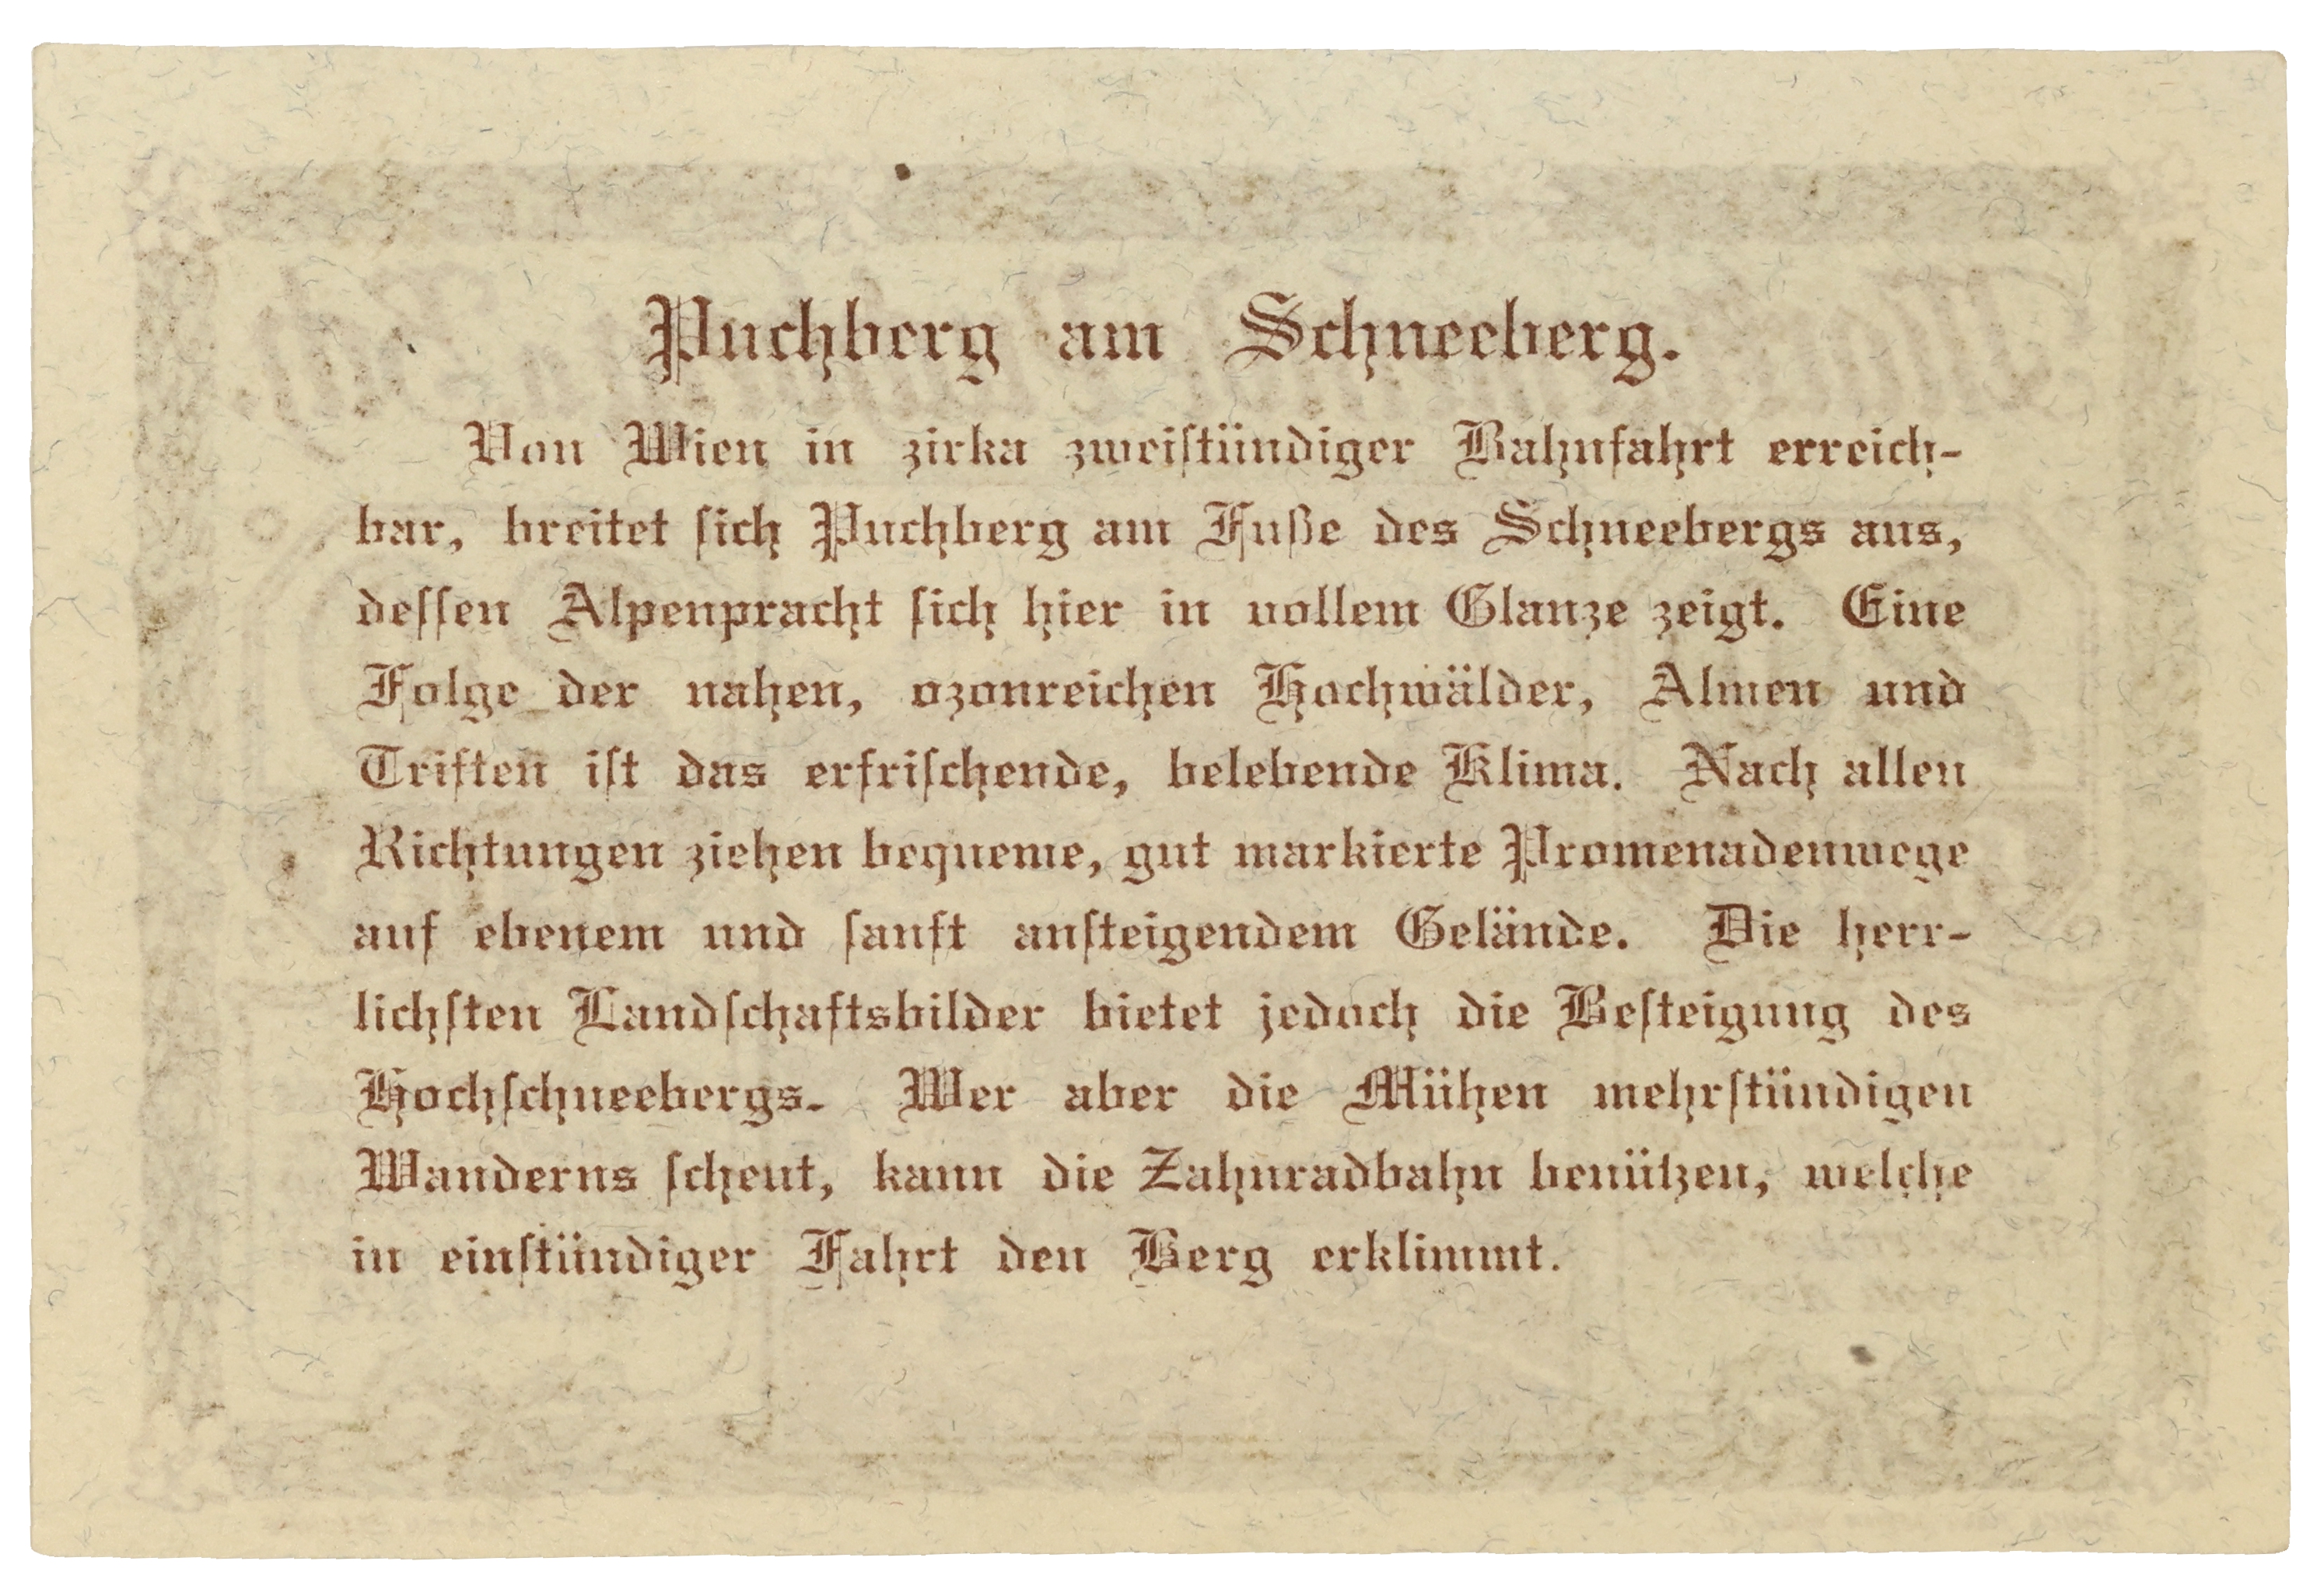 Puchberg am Schneeberg.
Von Wien in zirka zweiſtündiger Bahnfahrt erreich-
bar, breitet ſich Puchberg am Fuße des Schneebergs aus,
deſſen Alpenpracht ſich hier in vollem Glanze zeigt. Eine
Folge der nahen, ozonreichen Hochwälder, Almen und
Triften iſt das erfriſchende, belebende Klima. Nach allen
Richtungen ziehen bequeme, gut markierte Promenadenwege
auf ebenem und ſanft anſteigendem Gelände. Die herr-
lichſten Landſchaftsbilder bietet jedoch die Beſteigung des
Hochſchneebergs. Wer aber die Mühen mehrſtündigen
Wanderns ſcheut, kann die Zahnradbahn benützen, welche
in einſtündiger Fahrt den Berg erklimmt.